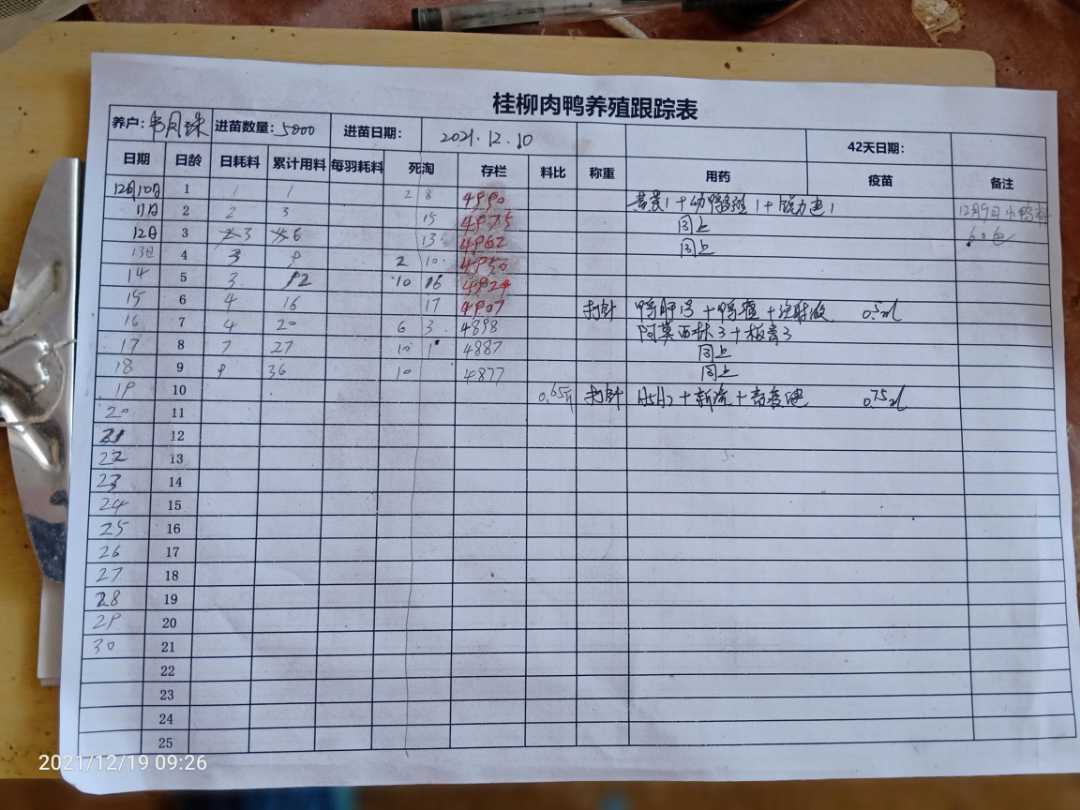 桂柳肉鸭养殖跟踪表
养户: 月珠 进苗数量: 5000 进苗日期: 2021.12.10 42天日期:
日期 日龄 日耗料 累计用料 每羽耗料 死淘 存栏 料比 称重 用药 疫苗 备注
12月10日 1 1 1 2 8 4990
11日 2 2 3 15 4975 同上 12月9日小鸭料
12日 3 3 6 13 4962 同上 60包
13日 4 3 9 2 10 4950
14 5 3 12 10 16 4924
15 6 4 16 17 4907 打针 鸭肝 + 鸭瘟 + 注射液 0.5ml
16 7 4 20 6 3 4898 阿莫西林3 + 板青3
17 8 7 27 10 1 4887 同上
18 9 9 36 10 4877 同上
19 10 0.65斤 打针 + 新流 + 0.75ml
20 11
21 12
22 13
23 14
24 15
25 16
26 17
27 18
28 19
29 20
30 21
22
23
24
25
2021/12/19 09:26